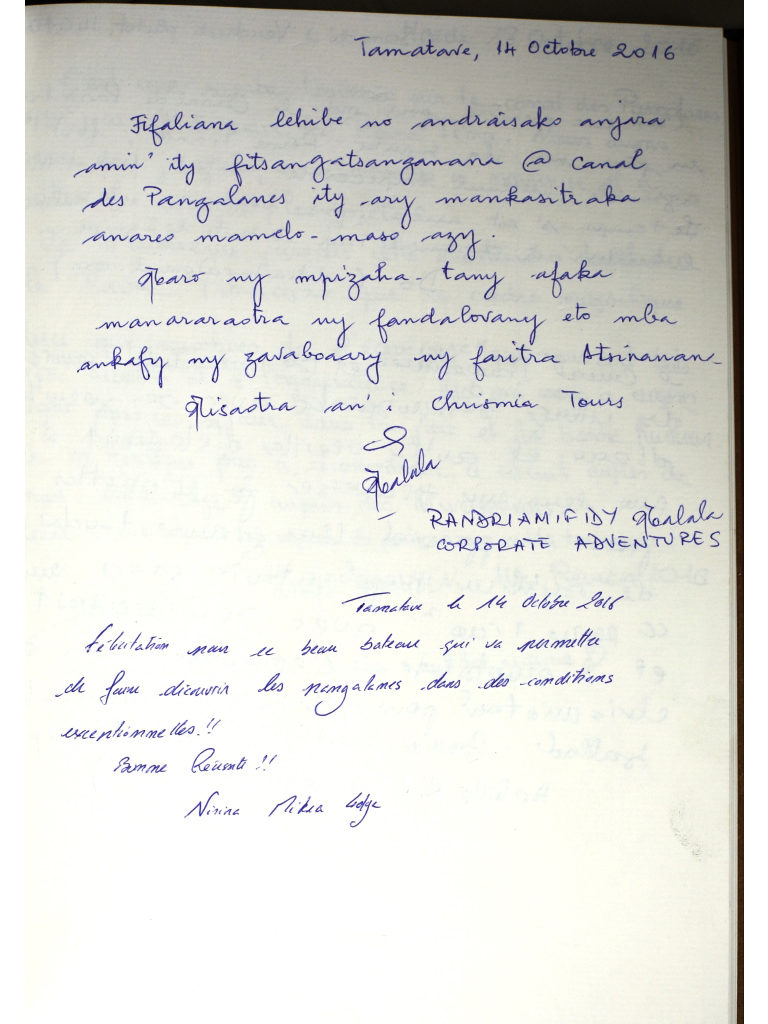 Tamatave, 14 Octobre 2016
Fifaliana lehibe no andraisako anjara
amin' ity fitsangatsanganana @ canal
des Pangalanes ity ary mankasitraka
anareo mamelo-maso azy.
Maro ny mpizaha-tany afaka
manararaotra ny fandalovany eto mba
ankafy ny zavaboaary ny faritra Atsinanan-
Misaotra an' i Chrismia Tours
RANDRIAMIFIDY
CORPORATE ADVENTURES
Tamatave le 14 Octobre 2016
félicitation pour ce beau bateau qui va permettre
de faire découvrir les pangalanes dans des conditions
exceptionnelles.!!
Bonne Réussite !!
Nirina Mikea Lodge